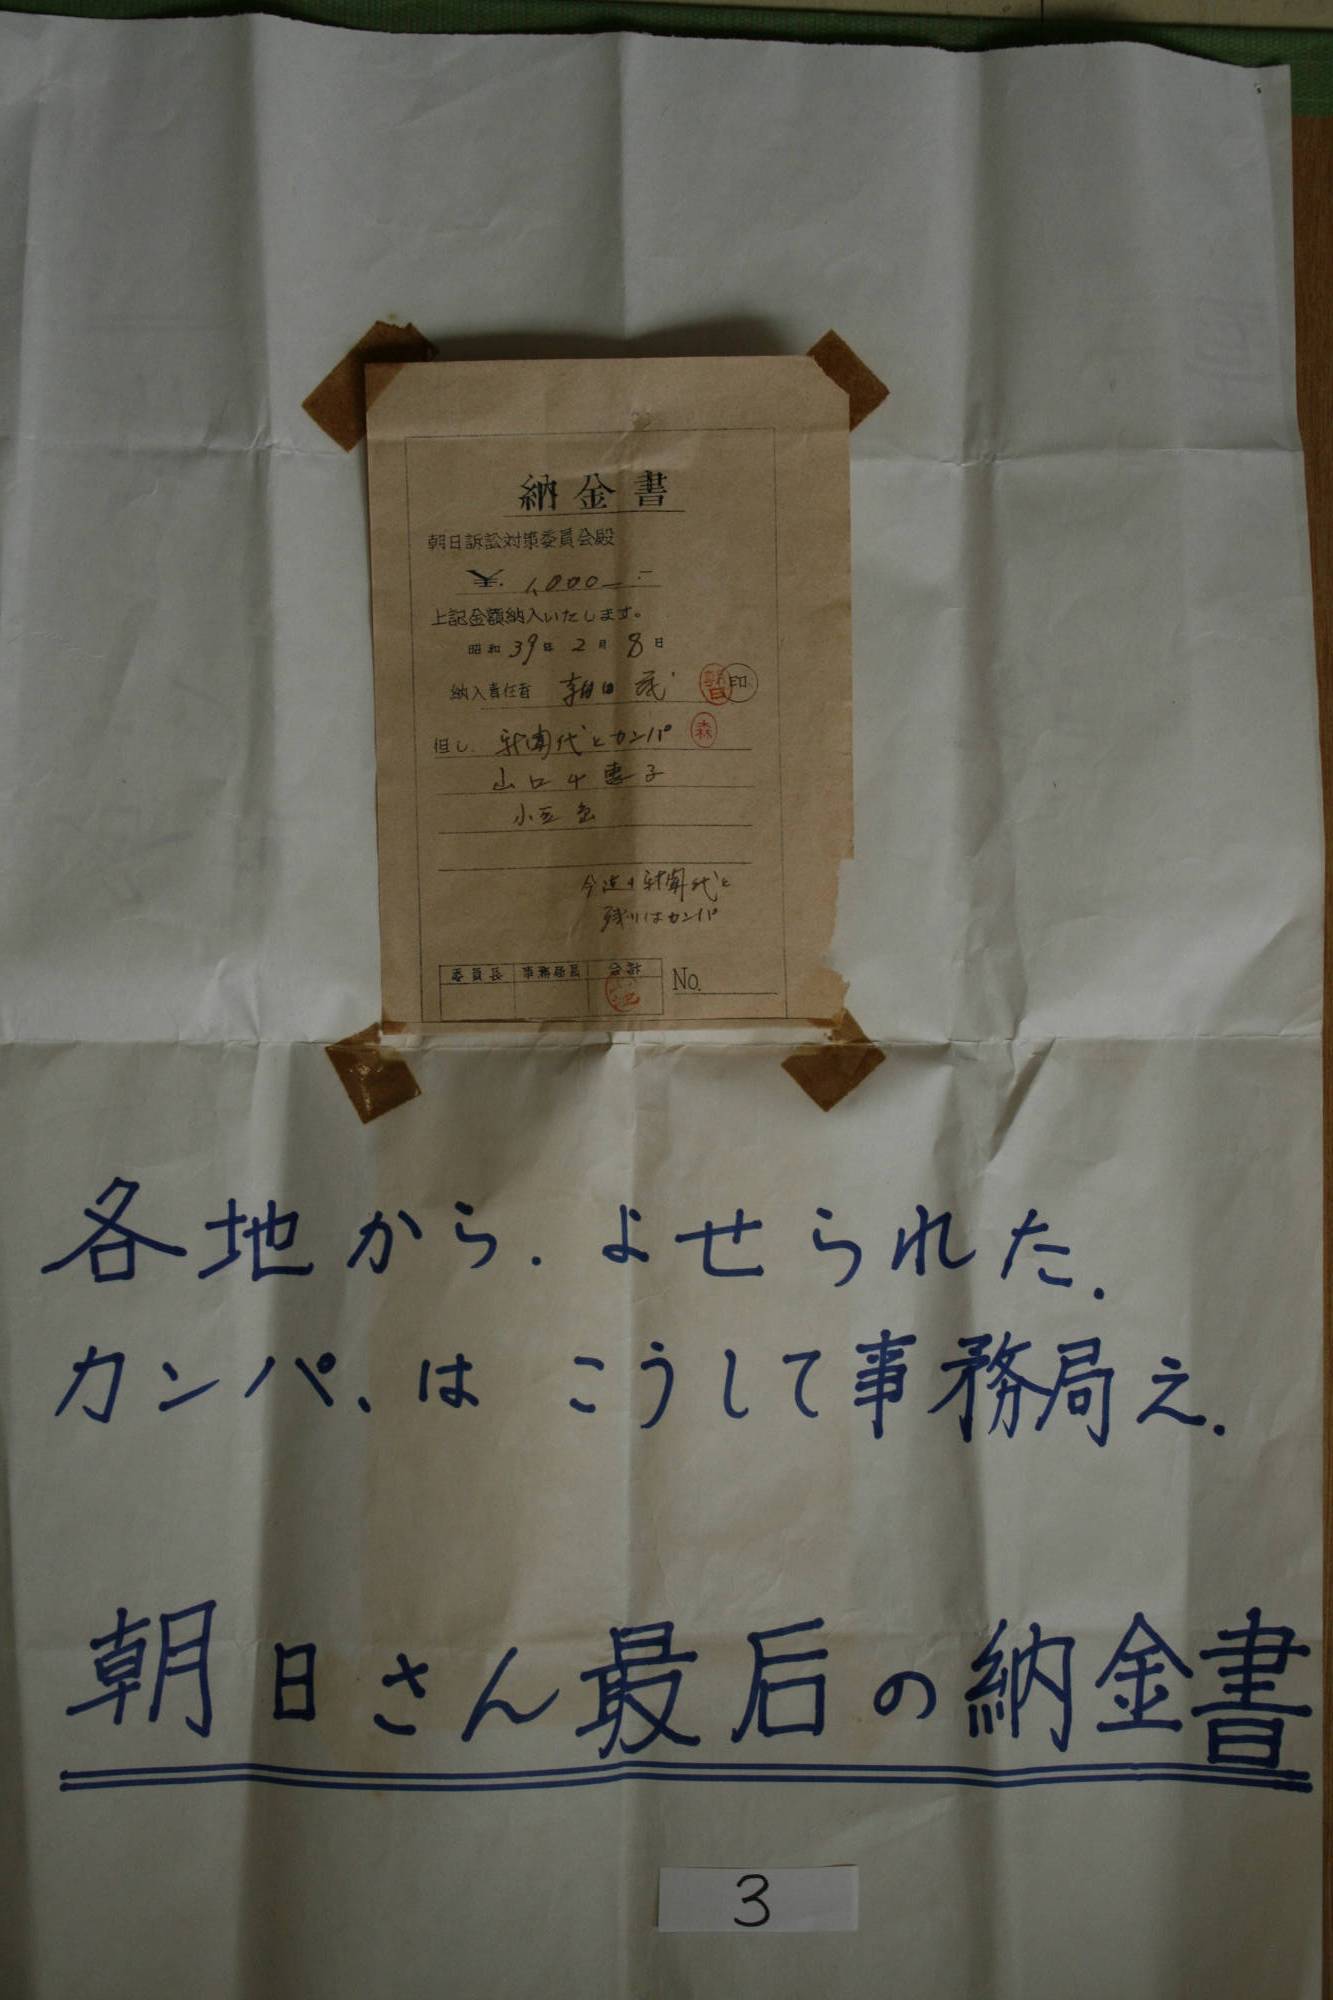 納金書
朝日訴訟対策委員会殿
1,000—
上記金額納入いたします。
昭和39年2月8日
納入責任者 朝日茂 朝日 印
但し、新聞代とカンパ 森
山口千恵子
小豆島
今迄の新聞代と
残りはカンパ
委員長 事務局長 係 No.
各地から.よせられた.
カンパ.は こうして事務局え.
朝日さん最后の納金書
3